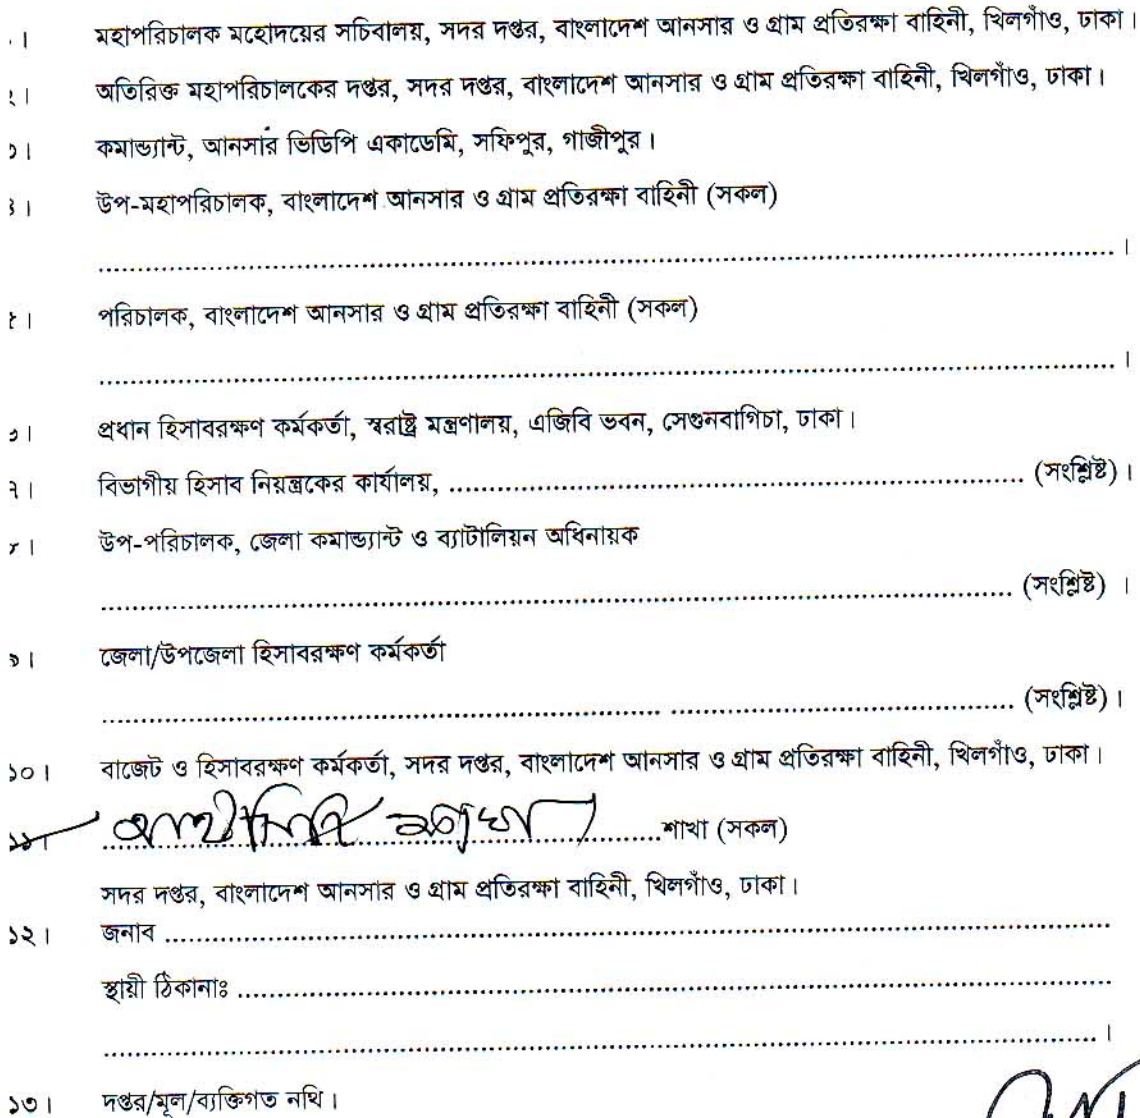 ১।	মহাপরিচালক মহোদয়ের সচিবালয়, সদর দপ্তর, বাংলাদেশ আনসার ও গ্রাম প্রতিরক্ষা বাহিনী, খিলগাঁও, ঢাকা।
২।	অতিরিক্ত মহাপরিচালকের দপ্তর, সদর দপ্তর, বাংলাদেশ আনসার ও গ্রাম প্রতিরক্ষা বাহিনী, খিলগাঁও, ঢাকা।
৩।	কমান্ড্যান্ট, আনসার ভিডিপি একাডেমি, সফিপুর, গাজীপুর।
৪।	উপ-মহাপরিচালক, বাংলাদেশ আনসার ও গ্রাম প্রতিরক্ষা বাহিনী (সকল)
..............................................................................।
৫।	পরিচালক, বাংলাদেশ আনসার ও গ্রাম প্রতিরক্ষা বাহিনী (সকল)
..............................................................................।
৬।	প্রধান হিসাবরক্ষণ কর্মকর্তা, স্বরাষ্ট্র মন্ত্রণালয়, এজিবি ভবন, সেগুনবাগিচা, ঢাকা।
৭।	বিভাগীয় হিসাব নিয়ন্ত্রকের কার্যালয়, .............................................. (সংশ্লিষ্ট)।
৮।	উপ-পরিচালক, জেলা কমান্ড্যান্ট ও ব্যাটালিয়ন অধিনায়ক
.............................................................................. (সংশ্লিষ্ট) ।
৯।	জেলা/উপজেলা হিসাবরক্ষণ কর্মকর্তা
.............................................................................. (সংশ্লিষ্ট)।
১০।	বাজেট ও হিসাবরক্ষণ কর্মকর্তা, সদর দপ্তর, বাংলাদেশ আনসার ও গ্রাম প্রতিরক্ষা বাহিনী, খিলগাঁও, ঢাকা।
১১।	..............................................শাখা (সকল)
সদর দপ্তর, বাংলাদেশ আনসার ও গ্রাম প্রতিরক্ষা বাহিনী, খিলগাঁও, ঢাকা।
১২।	জনাব ..............................................................................
স্থায়ী ঠিকানাঃ ..............................................................................
..............................................................................।
১৩।	দপ্তর/মূল/ব্যক্তিগত নথি।